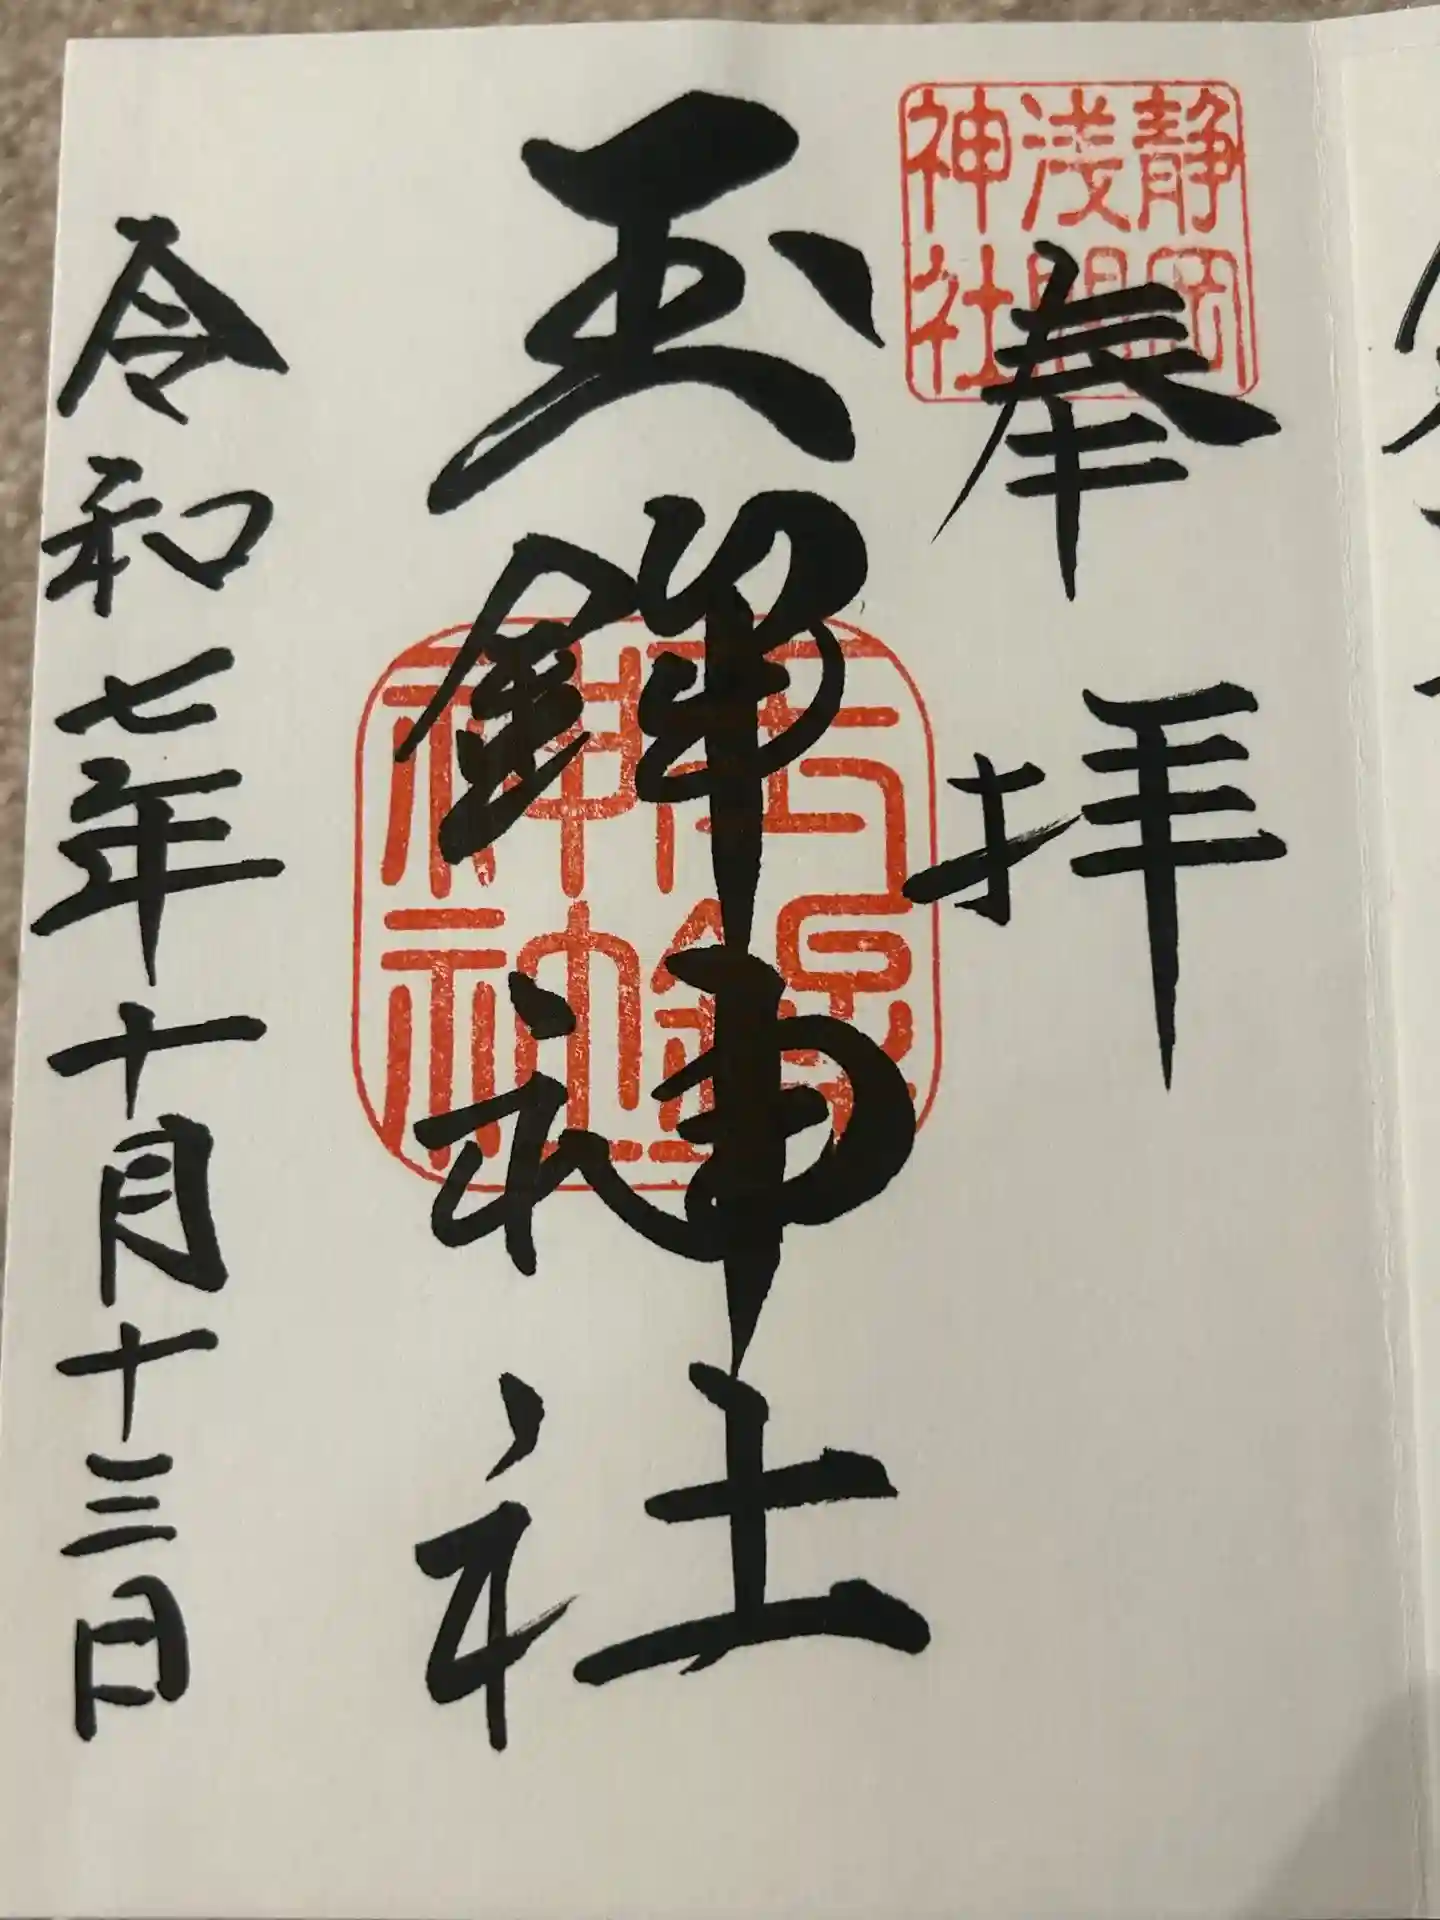 静岡
浅間
神社
奉拝
玉鉾神社
令和七年十月十三日